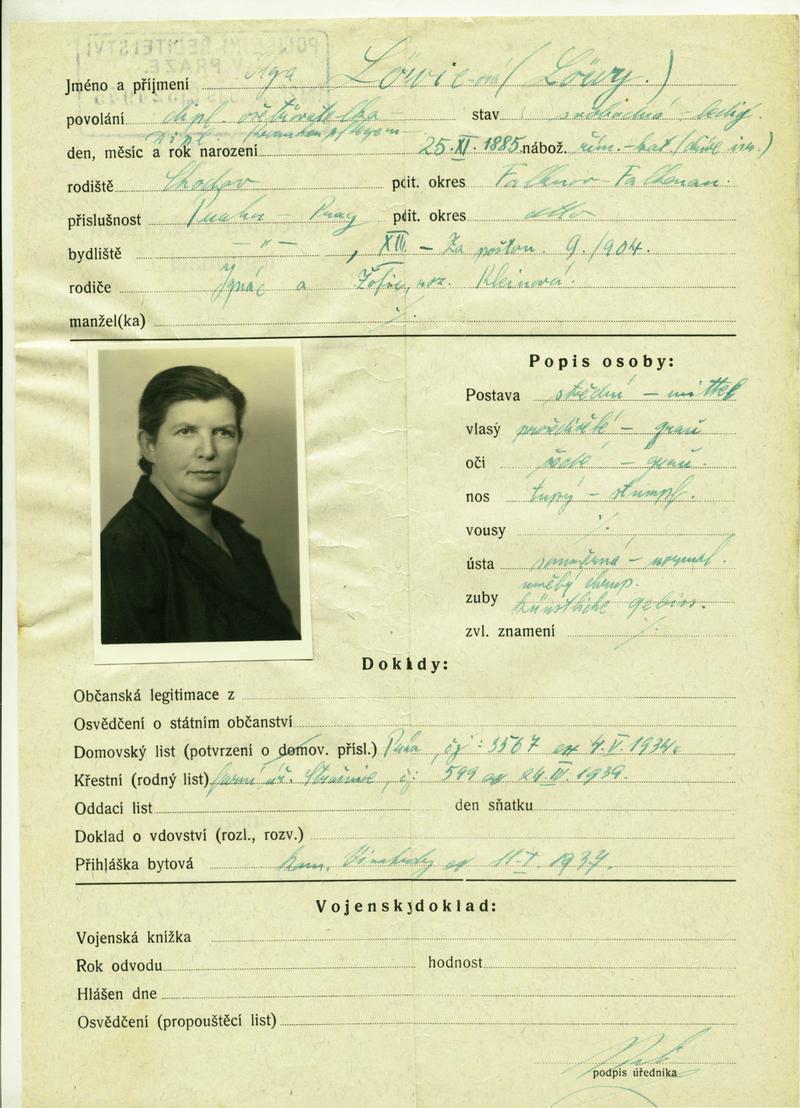 Jméno a příjmení Olga Löwie-ová (Löwy.)
povolání dipl. ošetřovatelka stav svobodná - ledig.
dipl.
den, měsíc a rok narození 25. XI. 1885 nábož. řím.-kat (dříve isr.)
rodiště Chodov polit. okres Falknov Falkenau.
příslušnost Praha - Prag polit. okres detto
bydliště - " - , XII. - Za poštou. 9./904.
rodiče Ignác a Žofie, roz. Kleinová.
manžel(ka) ./.
Popis osoby:
Postava střední - mittel
vlasý prošedivělé - grau
oči šedé - grau.
nos tupý - stumpf.
vousy ./.
ústa souměrná - normal.
umělý chrup.
zuby künstliche gebiss.
zvl. znamení ./.
Doklady:
Občanská legitimace z
Osvědčení o státním občanství
Domovský list (potvrzení o domov. přísl.) Praha, čj: 3567 ex 4. V. 1934.
Křestní (rodný list) farní úř. Strašnice, čj: 599 ex 24. III. 1939.
Oddací list den sňatku
Doklad o vdovství (rozl., rozv.)
Přihláška bytová kom. Vinohrady 1937.
Vojenský doklad:
Vojenská knížka
Rok odvodu hodnost
Hlášen dne
Osvědčení (propouštěcí list)
podpis úředníka